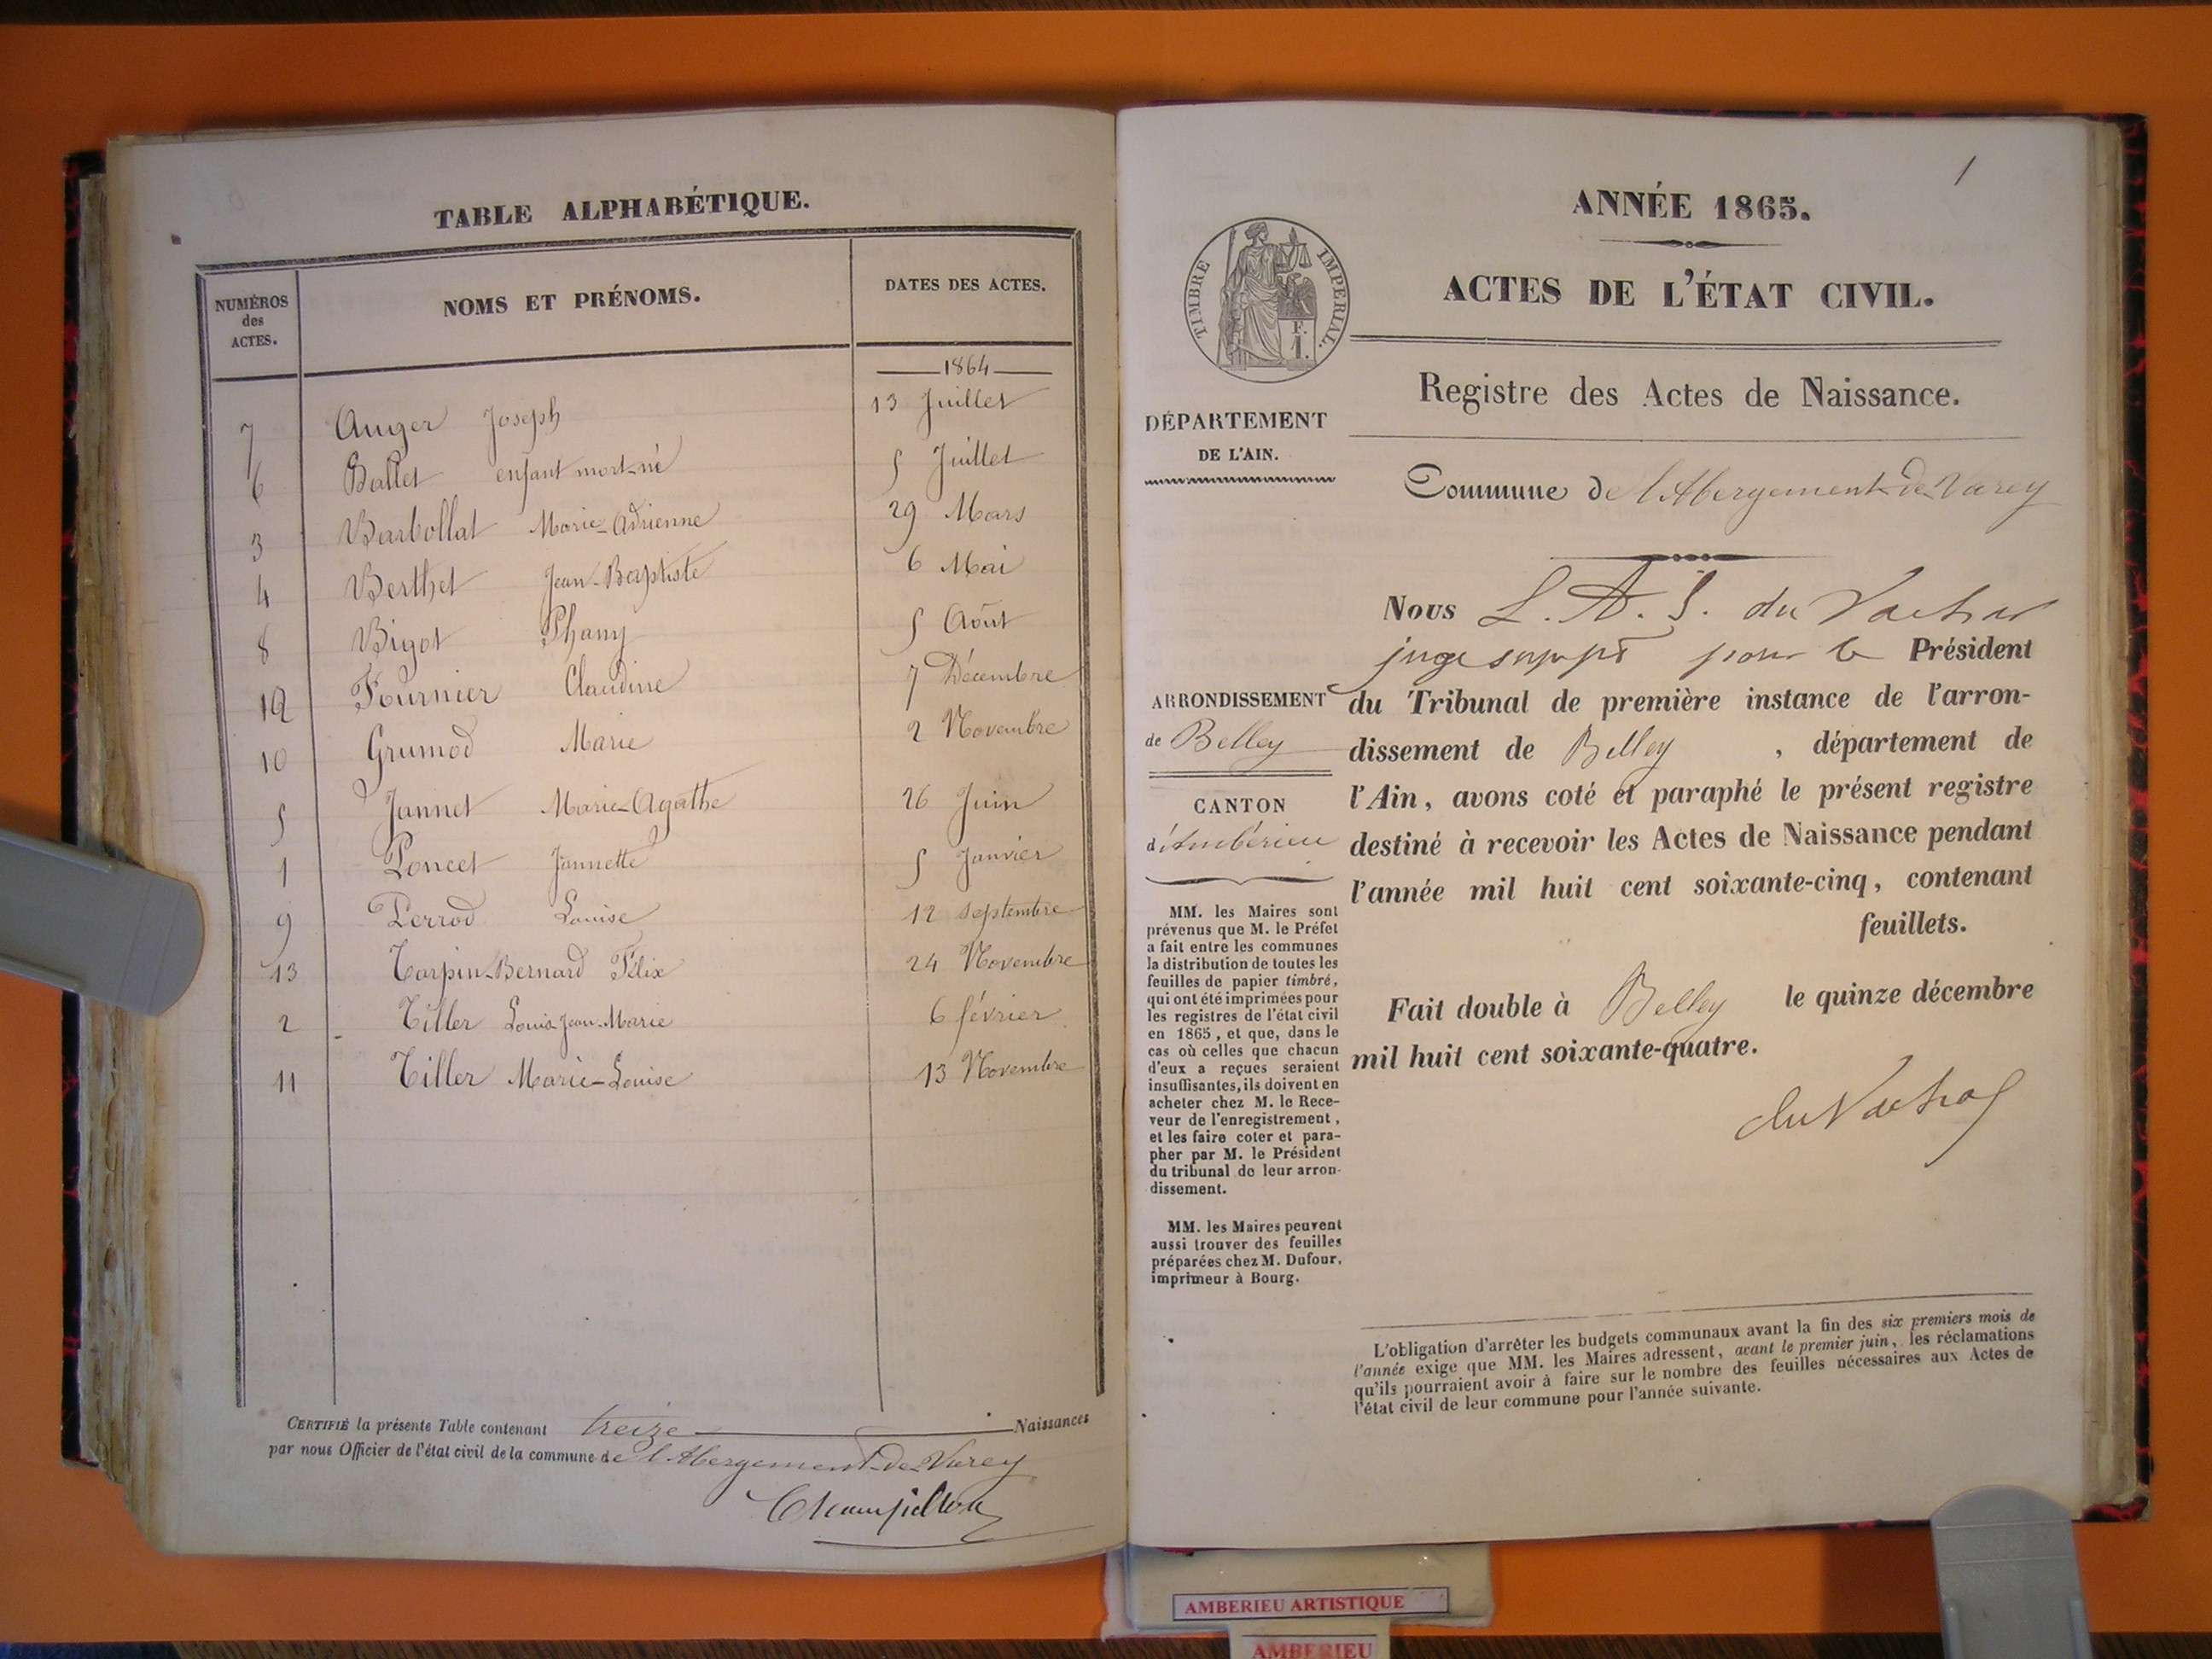 TABLE ALPHABÉTIQUE.
NUMÉROS
des
ACTES.
NOMS ET PRÉNOMS.
DATES DES ACTES.
1864
7 Auger Joseph 13 Juillet
6 Ballet enfant mort-né 5 Juillet
3 Barbollat Marie-Adrienne 29 Mars
4 Berthet Jean-Baptiste 6 Mai
8 Bigot Phany 5 Août
12 Fournier Claudine 7 Décembre
10 Grumod Marie 2 Novembre
5 Jannet Marie-Agathe 26 Juin
1 Poncet Jannette 5 Janvier
9 Perrod Louise 12 septembre
13 Tarpin-Bernard Félix 24 Novembre
2 Tiller Louis-Jean-Marie 6 février
11 Tiller Marie-Louise 13 Novembre
CERTIFIÉ la présente Table contenant treize Naissances
par nous Officier de l'état civil de la commune de l'Abergement-de-Varey
1
ANNÉE 1865.
ACTES DE L'ÉTAT CIVIL.
TIMBRE IMPÉRIAL.
F.
1.
Registre des Actes de Naissance.
DÉPARTEMENT
DE L'AIN.
Commune de l'Abergement-de-Varey
Nous L. A. S. du
juge suppt pour le Président
du Tribunal de première instance de l'arron-
dissement de Belley, département de
l'Ain, avons coté et paraphé le présent registre
destiné à recevoir les Actes de Naissance pendant
l'année mil huit cent soixante-cinq, contenant
feuillets.
Fait double à Belley le quinze décembre
mil huit cent soixante-quatre.
ARRONDISSEMENT
de Belley
CANTON
d'Ambérieu
MM. les Maires sont
prévenus que M. le Préfet
a fait entre les communes
la distribution de toutes les
feuilles de papier timbré,
qui ont été imprimées pour
les registres de l'état civil
en 1865, et que, dans le
cas où celles que chacun
d'eux a reçues seraient
insuffisantes, ils doivent en
acheter chez M. le Rece-
veur de l'enregistrement,
et les faire coter et para-
pher par M. le Président
du tribunal de leur arron-
dissement.
MM. les Maires peuvent
aussi trouver des feuilles
préparées chez M. Dufour,
imprimeur à Bourg.
L'obligation d'arrêter les budgets communaux avant la fin des six premiers mois de
l'année exige que MM. les Maires adressent, avant le premier juin, les réclamations
qu'ils pourraient avoir à faire sur le nombre des feuilles nécessaires aux Actes de
l'état civil de leur commune pour l'année suivante.
AMBERIEU ARTISTIQUE
AMBERIEU